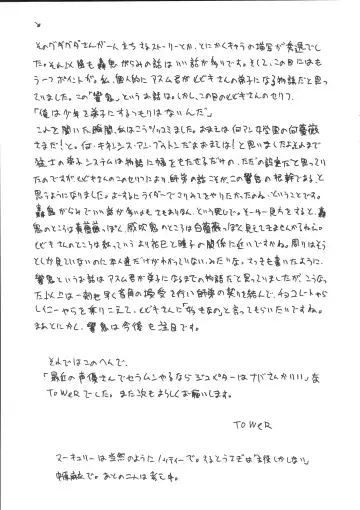 そのグダグダさんが一人立ちするストーリーとか、とにかくキャラの描写が秀逸でし
た。それ以降も轟鬼がらみの話はいい話が多いです。そして、この日にはも
う一つポイントが。私、個人的にアスム君がヒビキさんの弟子になる物語だと思っ
ていました。この「響鬼」というお話は。しかし、この日のヒビキさんのセリフ、
「俺は少年を弟子にするつもりはないんだ」
これを聞いた瞬間、私はこうツッコミました。おまえは何アン女学園の何薔薇
さまだ!と。何・キネンシス・アン・ブゥトンだおまえは!と思いましたよ。それまで
猛士の弟子システムは物語に幅をもたせるだけの、ただの設定だと思ってい
たのですが、ヒビキさんのこのセリフにより師弟の話こそがこの響鬼の根幹である、と
思うようになりました。よーするにライダーでマリみてをやりたかったのね、ということです。
轟鬼がらみでいい話が多いのもさもありなん、という感じで。そーゆー見方をすると、轟
鬼のところは黄薔薇っぽく、威吹鬼のところは白薔薇っぽく見えてきませんかねえ。
ヒビキさんのところは紅っていうより祐巳と瞳子の関係に近いですかね。周りはそう
としか見ていないのに本人達だけがわかっていない、みたいな。さっきも書いたように、
響鬼というお話はアスム君が弟子になるまでの物語だと思っていましたが、こうなっ
た以上は一刻も早く音角の授受を行い師弟の契りを結んで、チョコレートやら
レイニーやらを乗りこえて、ヒビキさんに「妹なの」と言ってもらいたいですね。
まあとにかく、響鬼は今後も注目です。
それではこのへんで。
「最近の声優さんでセラムンやるならジュピターはナバさんがいい」な
TOWERでした。また次もよろしくお願いします。
TOWER
マーキュリーは当然のようにノッティーで。するとうさぎは